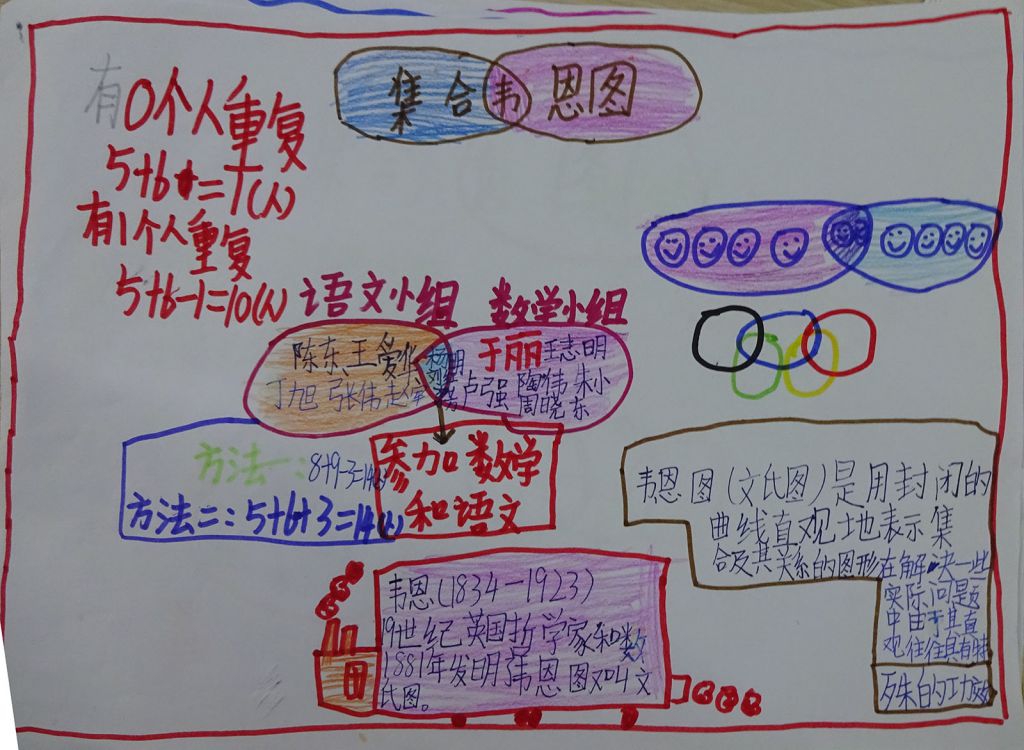 集合韦恩图
有0个人重复
5+6=11(人)
有1个人重复
5+6-1=10(人)
语文小组 数学小组
陈东、王爱华
丁旭 张伟 赵军
杨明
刘
于丽 王志明
卢强 陶伟 朱小
周晓 东
方法一:8+9-3=14(人)
方法二:5+6+3=14(人)
参加数学
和语文
韦恩图(文氏图)是用封闭的
曲线直观地表示集
合及其关系的图形在解决一些
实际问题
中由于其直
观往往具有特
殊的功效
韦恩(1834-1923)
19世纪英国哲学家和数
1881年发明韦恩图又叫文
氏图。